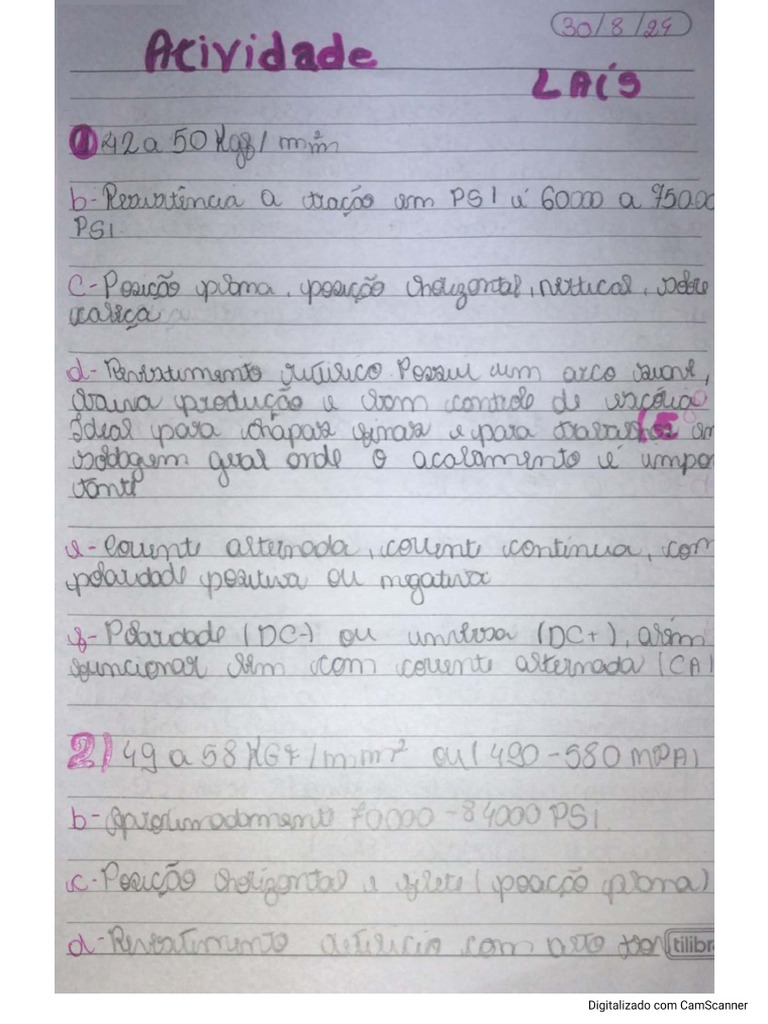 30/8/24
Atividade
LAÍS
1) 42 a 50 Kgf/mm²
b- Resistência a tração em PSI é 60000 a 75000
PSI.
c- Posição plana, posição horizontal, vertical, sobre
cabeça
d- Revestimento rutílico Possui um arco suave,
baixa produção e bom controle de escória
Ideal para chapas finas e para trabalhos em
soldagem geral onde o acabamento é impor
tante
e- Corrente alternada, corrente contínua, com
polaridade positiva ou negativa
f- Polaridade (DC-) ou inversa (DC+), assim
funcionar bem com corrente alternada (CA)
2) 49 a 58 KGF/mm² ou (490-580 MPA)
b- Aproximadamente 70000-84000 PSI.
c- Posição horizontal e filete (posição plana)
d- Revestimento com alto
tilibra
Digitalizado com CamScanner